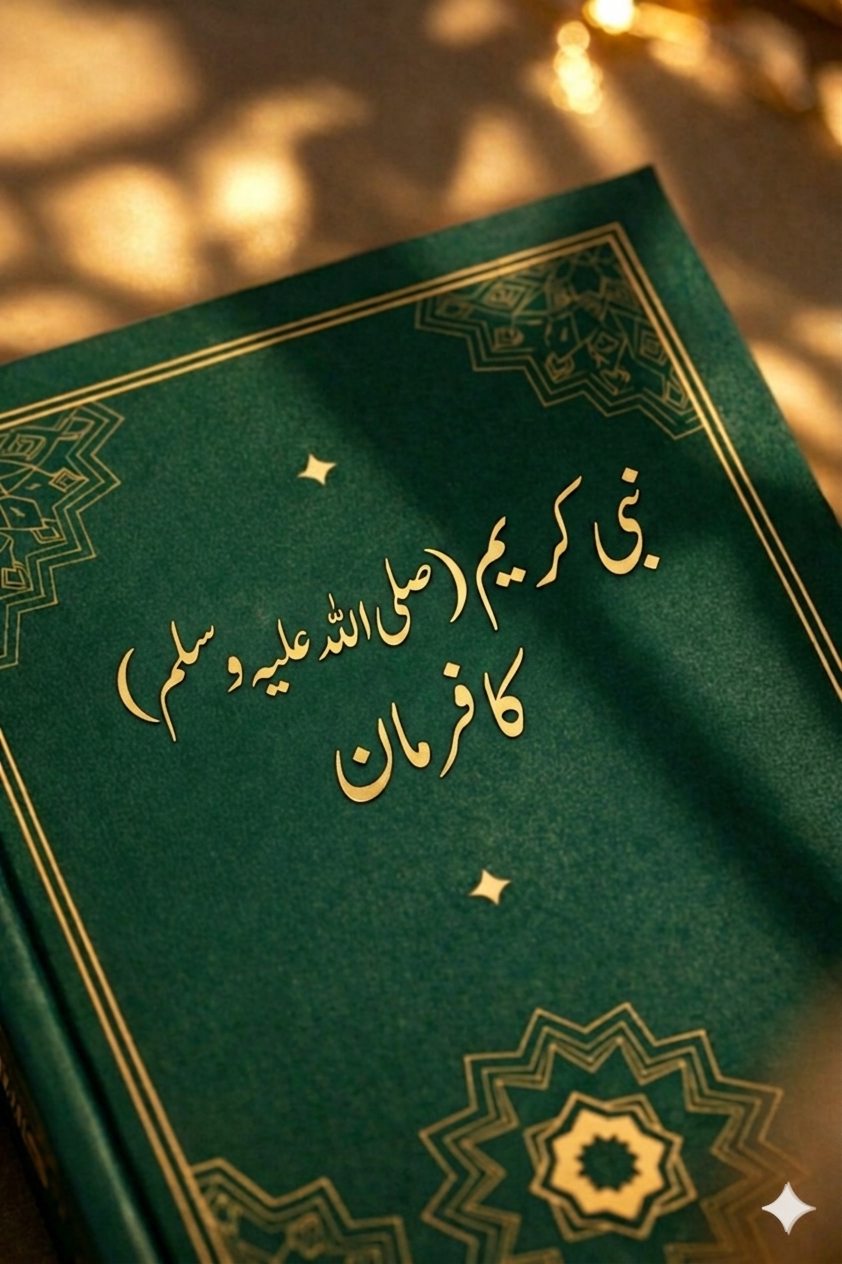 نبی کریم (صلی اللہ علیہ وسلم)
کا فرمان